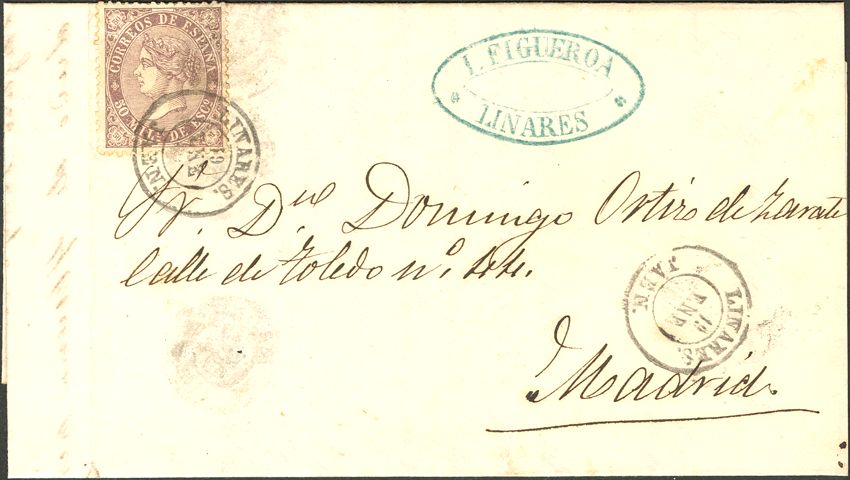 CORREOS DE ESPAÑA
50 MILS DE ESCO
LINARES.
19
ENE
JAEN.
I. FIGUEROA
LINARES
Sr. Dn Domingo Ortiz de Zarate
Calle de Toledo nº. 44.
Madrid.
LINARES.
19
ENE
JAEN.